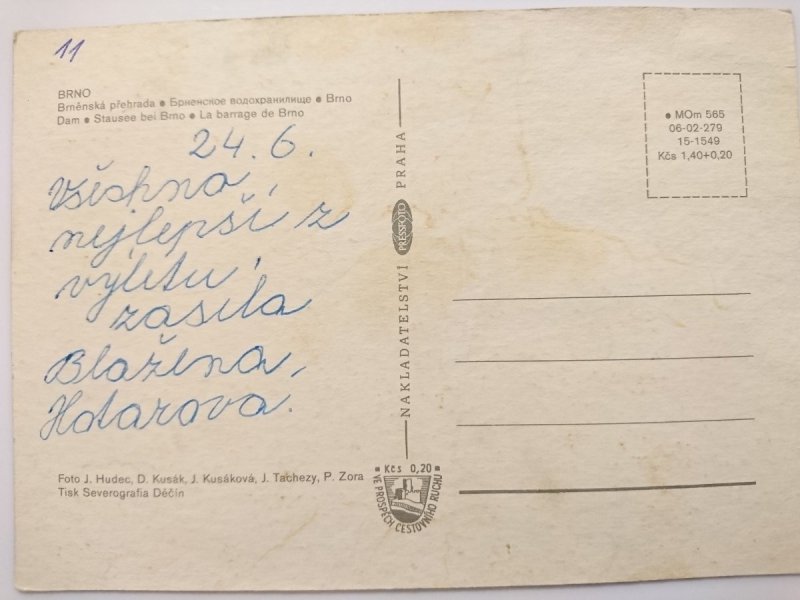 11
BRNO
Brněnská přehrada • Брненское водохранилище • Brno
Dam • Stausee bei Brno • La barrage de Brno
24. 6.
Všechno
nejlepší z
výletu,
zasila
Blažena,
Hotarova.
Foto J. Hudec, D. Kusák, J. Kusáková, J. Tachezy, P. Zora
Tisk Severografia Děčín
NAKLADATELSTVÍ PRESSFOTO PRAHA
• Kčs 0,20 •
VE PROSPĚCH CESTOVNÍHO RUCHU
• MOm 565
06-02-279
15-1549
Kčs 1,40+0,20